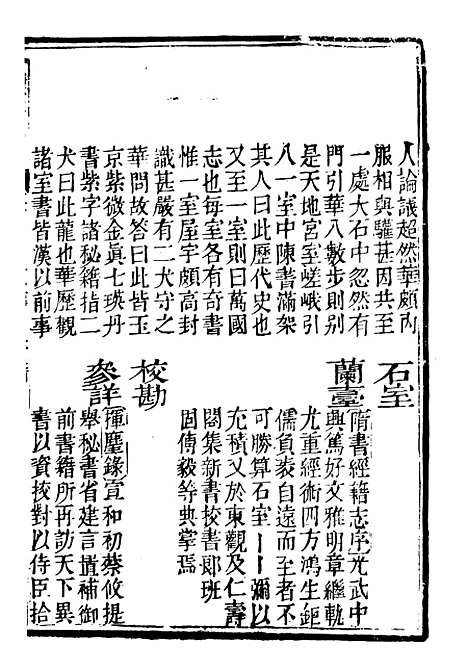 人論議超然華頗內
服相與驩甚因共至
一處大石中忽然有
門引華入數步則别
是天地宮室嵯峨引
入一室中陳書滿架
其人曰此歷代史也
又至一室則曰萬國
志也每室各有奇書
惟一室屋宇頗高封
識甚嚴有二犬守之
華問故答曰此皆玉
京紫微金眞七瑛丹
書紫字諸秘籍指二
犬曰此龍也華歷觀
諸室書皆漢以前事
石室
蘭臺
隋書經籍志序光武中
興篤好文雅明章繼軌
尤重經術四方鴻生鉅
儒負袠自遠而至者不
可勝算石室丨丨彌以
充積又於東觀及仁壽
閣集新書校書郎班
固傅毅等典掌焉
校勘
叅詳
揮麈錄宣和初蔡攸提
舉秘書省建言置補御
前書籍所再訪天下異
書以資挍對以侍臣拾